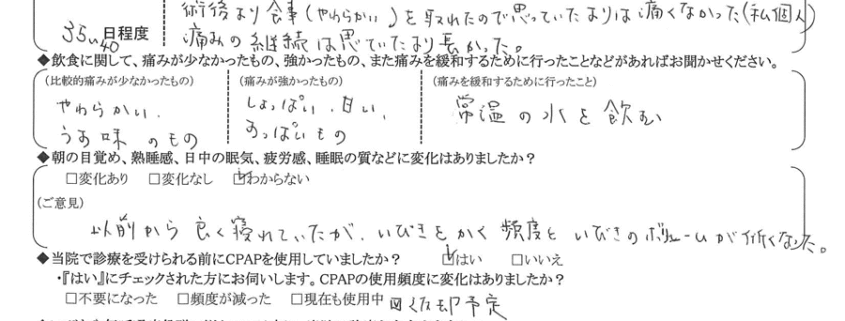 術後より食事(やわらかい)を取れたので思っていたよりは痛くなかった(私個人)
35〜40 日程度 痛みの継続は思っていたより長かった。
◆飲食に関して、痛みが少なかったもの、強かったもの、また痛みを緩和するために行ったことなどがあればお聞かせください。
(比較的痛みが少なかったもの) (痛みが強かったもの) (痛みを緩和するために行ったこと)
やわらかい、 しょっぱい、甘い、 常温の水を飲む
うす味のもの すっぱいもの
◆朝の目覚め、熟睡感、日中の眠気、疲労感、睡眠の質などに変化はありましたか?
□変化あり □変化なし ☑わからない
(ご意見)
以前から良く寝れていたが、いびきをかく頻度といびきのボリュームが低くなった。
◆当院で診療を受けられる前にCPAPを使用していましたか? ☑はい □いいえ
・『はい』にチェックされた方にお伺いします。CPAPの使用頻度に変化はありましたか?
□不要になった □頻度が減った □現在も使用中 返却予定